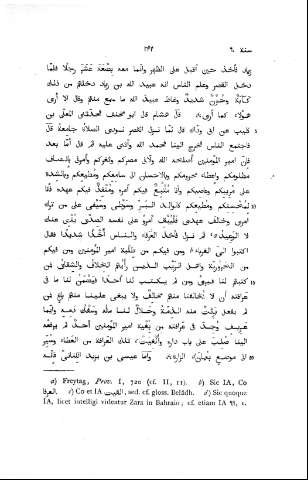 سنة ٦٠ ٢٤٢
زياد فأخذ حين أقبل على الظهر وإنما معه بضعة عشر رجلا فلما
دخل القصر وعلم الناس أنه عبيد الله بن زياد دخلهم من ذلك
كآبة وحزن شديد وغاظ عبيد الله ما سمع منهم وقال ألا أرى
هؤلاء كما أرى، قال هشام قال أبو مخنف فحدثني المعلى بن
كليب عن أبي وداك قال لما نزل القصر نودى الصلاة جامعة قال
فاجتمع الناس فخرج الينا فحمد الله وأثنى عليه ثم قال أما بعد
فان أمير المؤمنين أصلحه الله ولاني مصركم وثغركم وأمرني بإنصاف
مظلومكم وإعطاء محرومكم وبالاحسان الى سامعكم ومطيعكم وبالشدة
على مريبكم وعاصيكم وأنا متبع فيكم أمره ومنفذ فيكم عهده فأنا
لمحسنكم ومطيعكم كالوالد البر وسوطى وسيفى على من ترك
أمرى وخالف عهدى فليبق امرؤ على نفسه الصدق ينبى عنك
لا الوعيد، ثم نزل فأخذ العرفاء والناس أخذا شديدا فقال
اكتبوا الى الغرباء ومن فيكم من طلبة أمير المؤمنين ومن فيكم
من الحرورية وأهل الريب الذين رأيهم الخلاف والشقاق فمن
كتبهم لنا فبرئ ومن لم يكتب لنا أحدا فيضمن لنا ما في
عرافته ألا يخالفنا منهم مخالف ولا يبغى علينا منهم باغ فمن
لم يفعل برئت منه الذمة وحلال لنا ماله وسفك دمه وأيما
عريف وجد في عرافته من بغية أمير المؤمنين أحد لم يرفعه
الينا صلب على باب داره وألغيت تلك العرافة من العطاء وسير
الى موضع بعمان الزارة، وأما عيسى بن يزيد الكناني فانه
a) Freytag, Prov. I, 720 (cf. II, 11). b) Sic IA, Co
العرفا. c) Co et IA القيت, sed. cf. gloss. Belâdh. d) Sic quoque
IA, licet intelligi videatur Zara in Bahrain; cf. etiam IA ٢٩, 1.